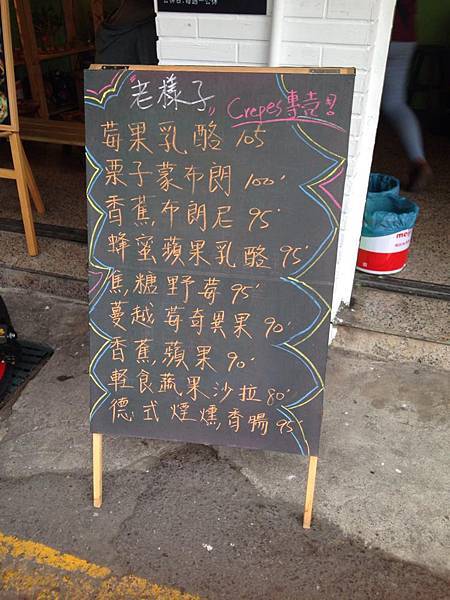 "老樣子"
Crepes專売!
莓果乳酪 105
栗子蒙布朗 100'
香蕉布朗尼 95'
蜂蜜蘋果乳酪 95'
焦糖野莓 95'
蔓越莓奇異果 90'
香蕉蘋果 90'
輕食蔬果沙拉 80'
德式煙燻香腸 95'